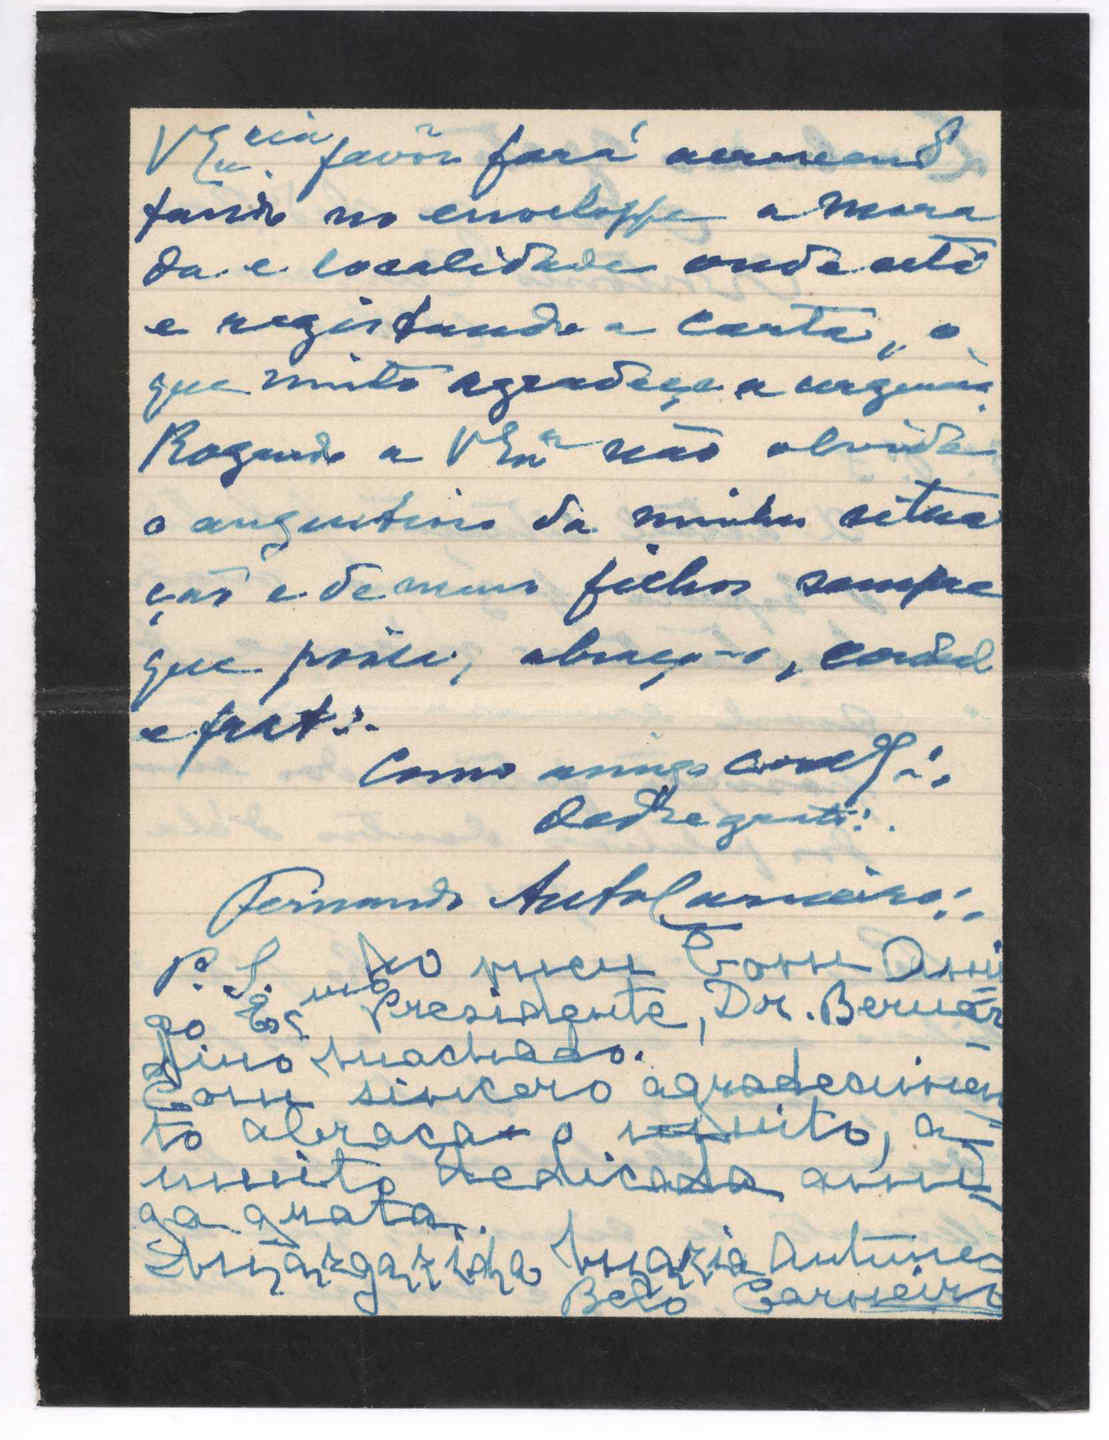 V Ex.cia favôr fará acrescen
tando no enveloppe a mora
da e localidade onde está
e registando a carta, o
que muito agradeço a urgencia.
Rogando a V Ex.a não olvidar
o angustioso da minha situa
ção e de meus filhos sempre
que possa, abraça-o, cordeal
e frat∴
Como amigo
grato∴
Fernando Auto Carneiro∴
P. S. Ao meu Bom Ami
go Ex.mo Presidente, Dr. Bernar
dino Machado.
Com sincero agradecimen
to abraça-o muito, a
muito dedicada ami
ga grata.
Margarida Maria Antunes
Belo Carneiro